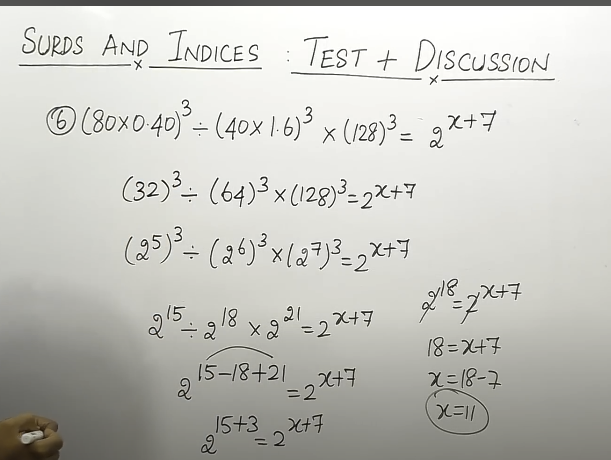 SURDS AND INDICES : TEST + DISCUSSION
⑥ (80×0.40)³ ÷ (40×1.6)³ × (128)³ = 2^(x+7)
(32)³ ÷ (64)³ × (128)³ = 2^(x+7)
(2⁵)³ ÷ (2⁶)³ × (2⁷)³ = 2^(x+7)
2¹⁵ ÷ 2¹⁸ × 2²¹ = 2^(x+7)
2^(15-18+21) = 2^(x+7)
2^(15+3) = 2^(x+7)
2¹⁸ = 2^(x+7)
18 = x+7
x = 18-7
x = 11